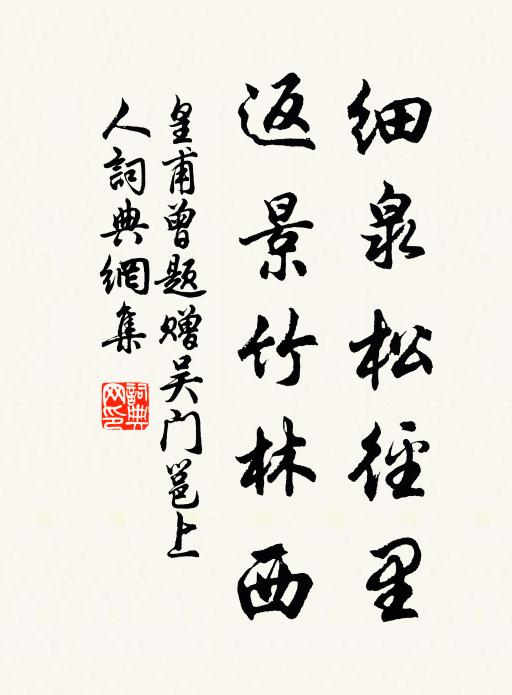 细泉松徑里
返景竹林西
皇甫曾题赠吴门邕上
人詞典網集
詞典
网印